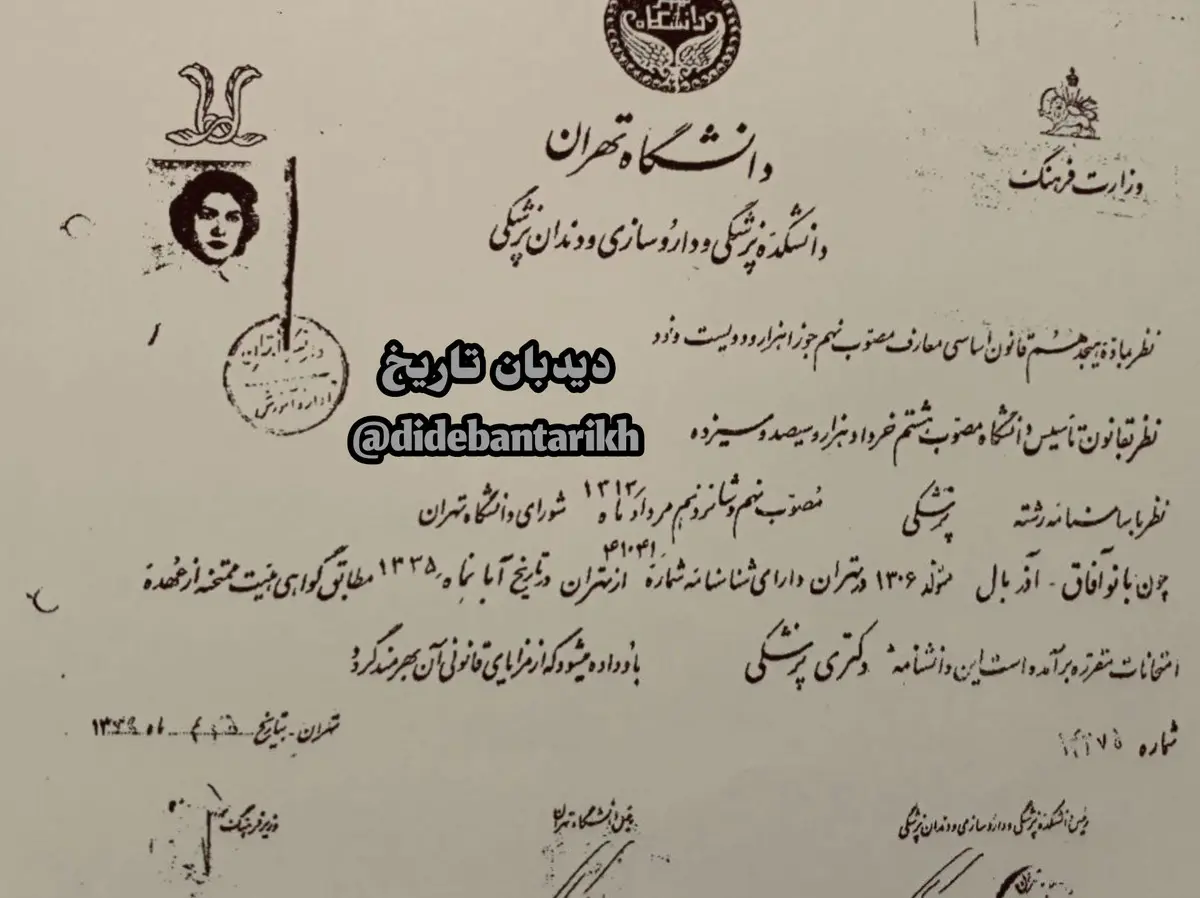 دانشگاه
وزارت فرهنگ
دانشگاه تهران
دانشکده پزشکی و داروسازی و دندان پزشکی
اداره آموزش
نظر بماده هیجدهم قانون اساسی معارف مصوب نهم جوزا هزار و دویست و نود
دیدبان تاریخ
@didebantarikh
نظر بقانون تأسیس دانشگاه مصوب هشتم خرداد هزار و سیصد و سیزده
نظر باساسنامه رشته پزشکی مصوب نهم و شانزدهم مرداد ماه ۱۳۱۳ شورای دانشگاه تهران
چون بانو آفاق - آذر بال متولد ۱۳۰۶ در تهران دارای شناسنامه شماره ۴۱۰۴۱ از تهران در تاریخ آبا نماه ۱۳۳۵ مطابق گواهی هیئت ممتحنه از عهده
امتحانات مقرره برآمده است این دانشنامه دکتری پزشکی باو داده میشود که از مزایای قانونی آن بهره مند گردد
شماره
تهران - بتاریخ ماه
رئیس دانشکده پزشکی و داروسازی و دندان پزشکی
رئیس دانشگاه تهران
وزیر فرهنگ